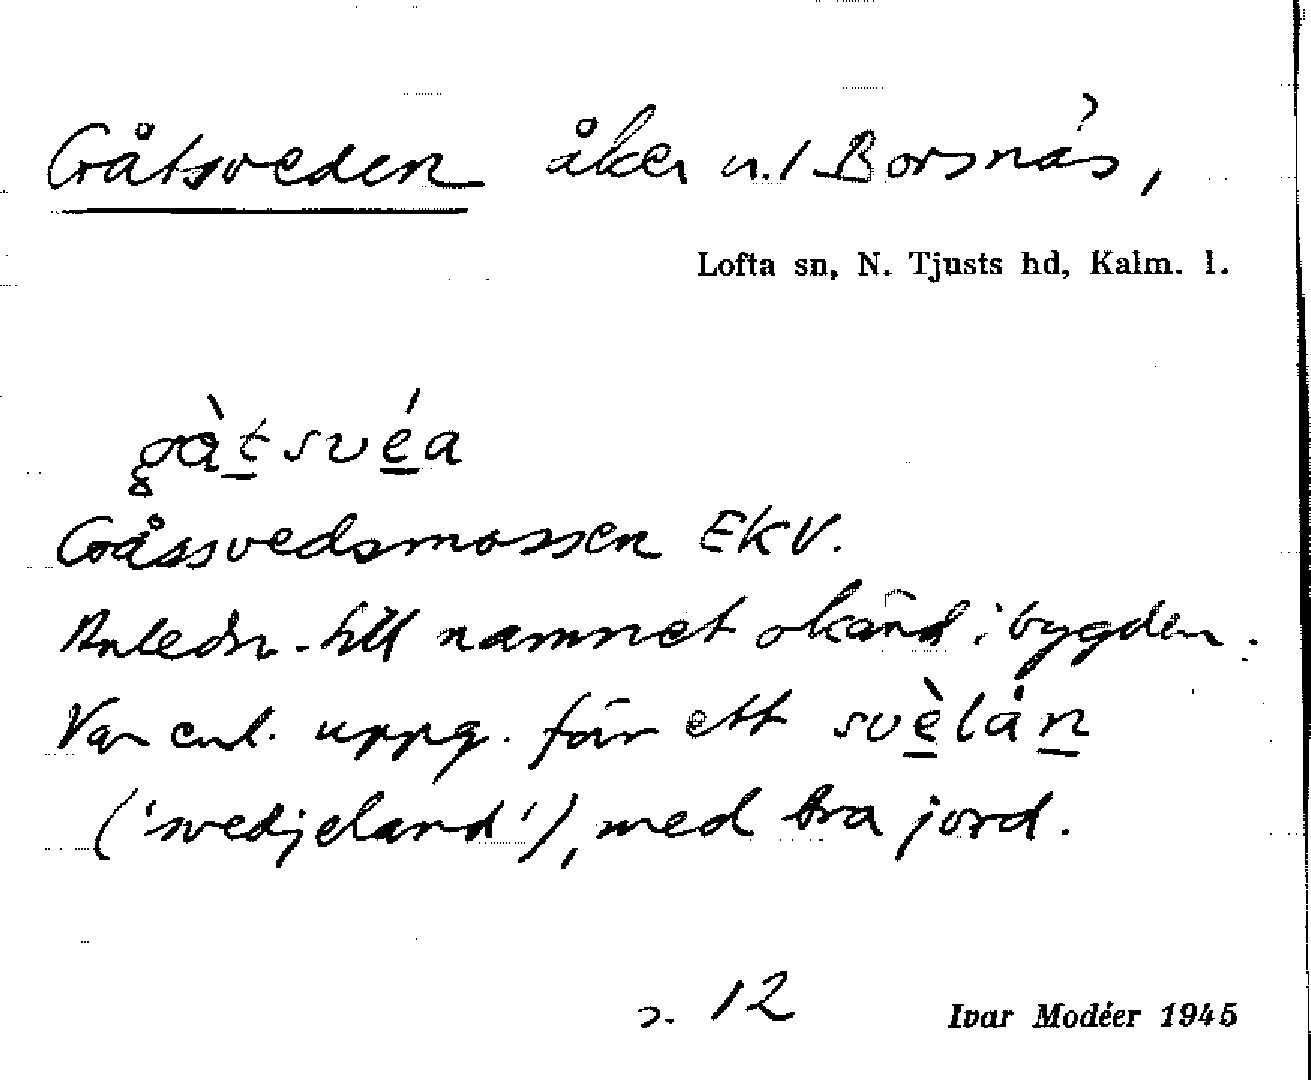 Gåtsveden åker u./ Borsnäs,
Lofta sn, N. Tjusts hd, Kalm. l.
gàtsvéa
Gåssvedsmossen EKV.
Anledn. till namnet okänd i bygden.
Var enl. uppg. förr ett svèlån
('svedjeland'), med bra jord.
s. 12
Ivar Modéer 1945